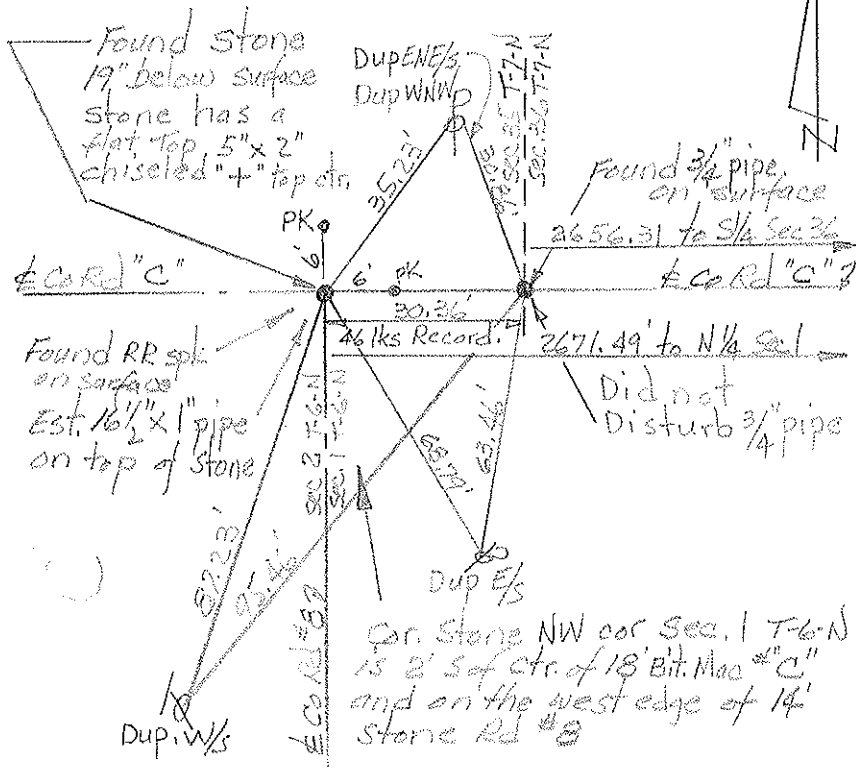 Found Stone
19" below surface
stone has a
flat Top 5" x 2"
chiseled "+" top ctr.
Dup ENE/s
Dup WNW
Sec. 35 T-7-N
Sec. 36 T-7-N
N
35.23'
Found 3/4" pipe
on surface
2656.31 to S1/4 Sec 36
PK
6'
℄ Co Rd "C"
6'
PK
℄ Co Rd "C"
30.36'
46 lks Record.
2671.49' to N1/4 Sec 1
Found RR spk
on surface
Est. 16 1/2" x 1" pipe
on top of stone
Did not
Disturb 3/4" pipe
Sec. 2 T-6-N
Sec. 1 T-6-N
68.79'
63.46'
Dup E/s
Dup. W/s
℄ Co Rd
Cor. Stone NW cor Sec. 1 T-6-N
is 2' S of ctr. of 18' Bit. Mac "C"
and on the west edge of 14'
Stone Rd #8